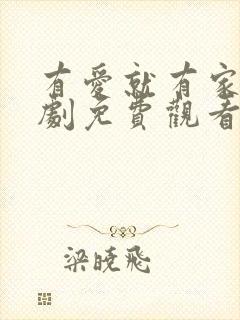 有愛就有家
劇免費觀看
梁曉飛